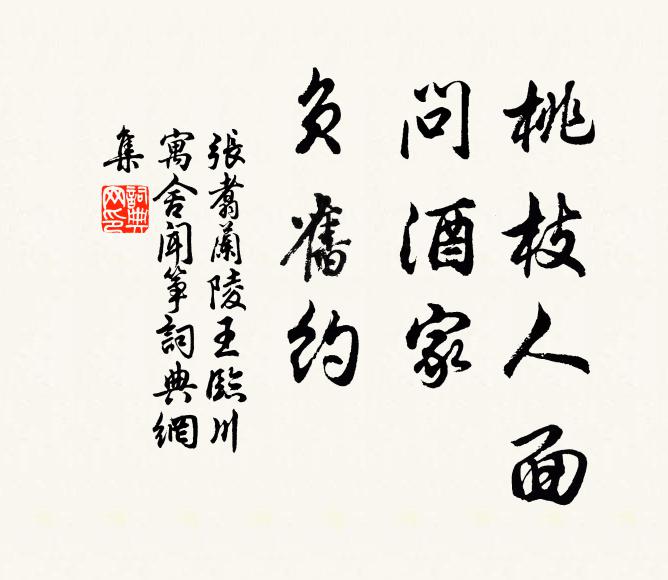 桃枝人面
問酒家
負舊約
張翥蘭陵王臨川
寓舍聞箏詞典網
集
詞典
网印